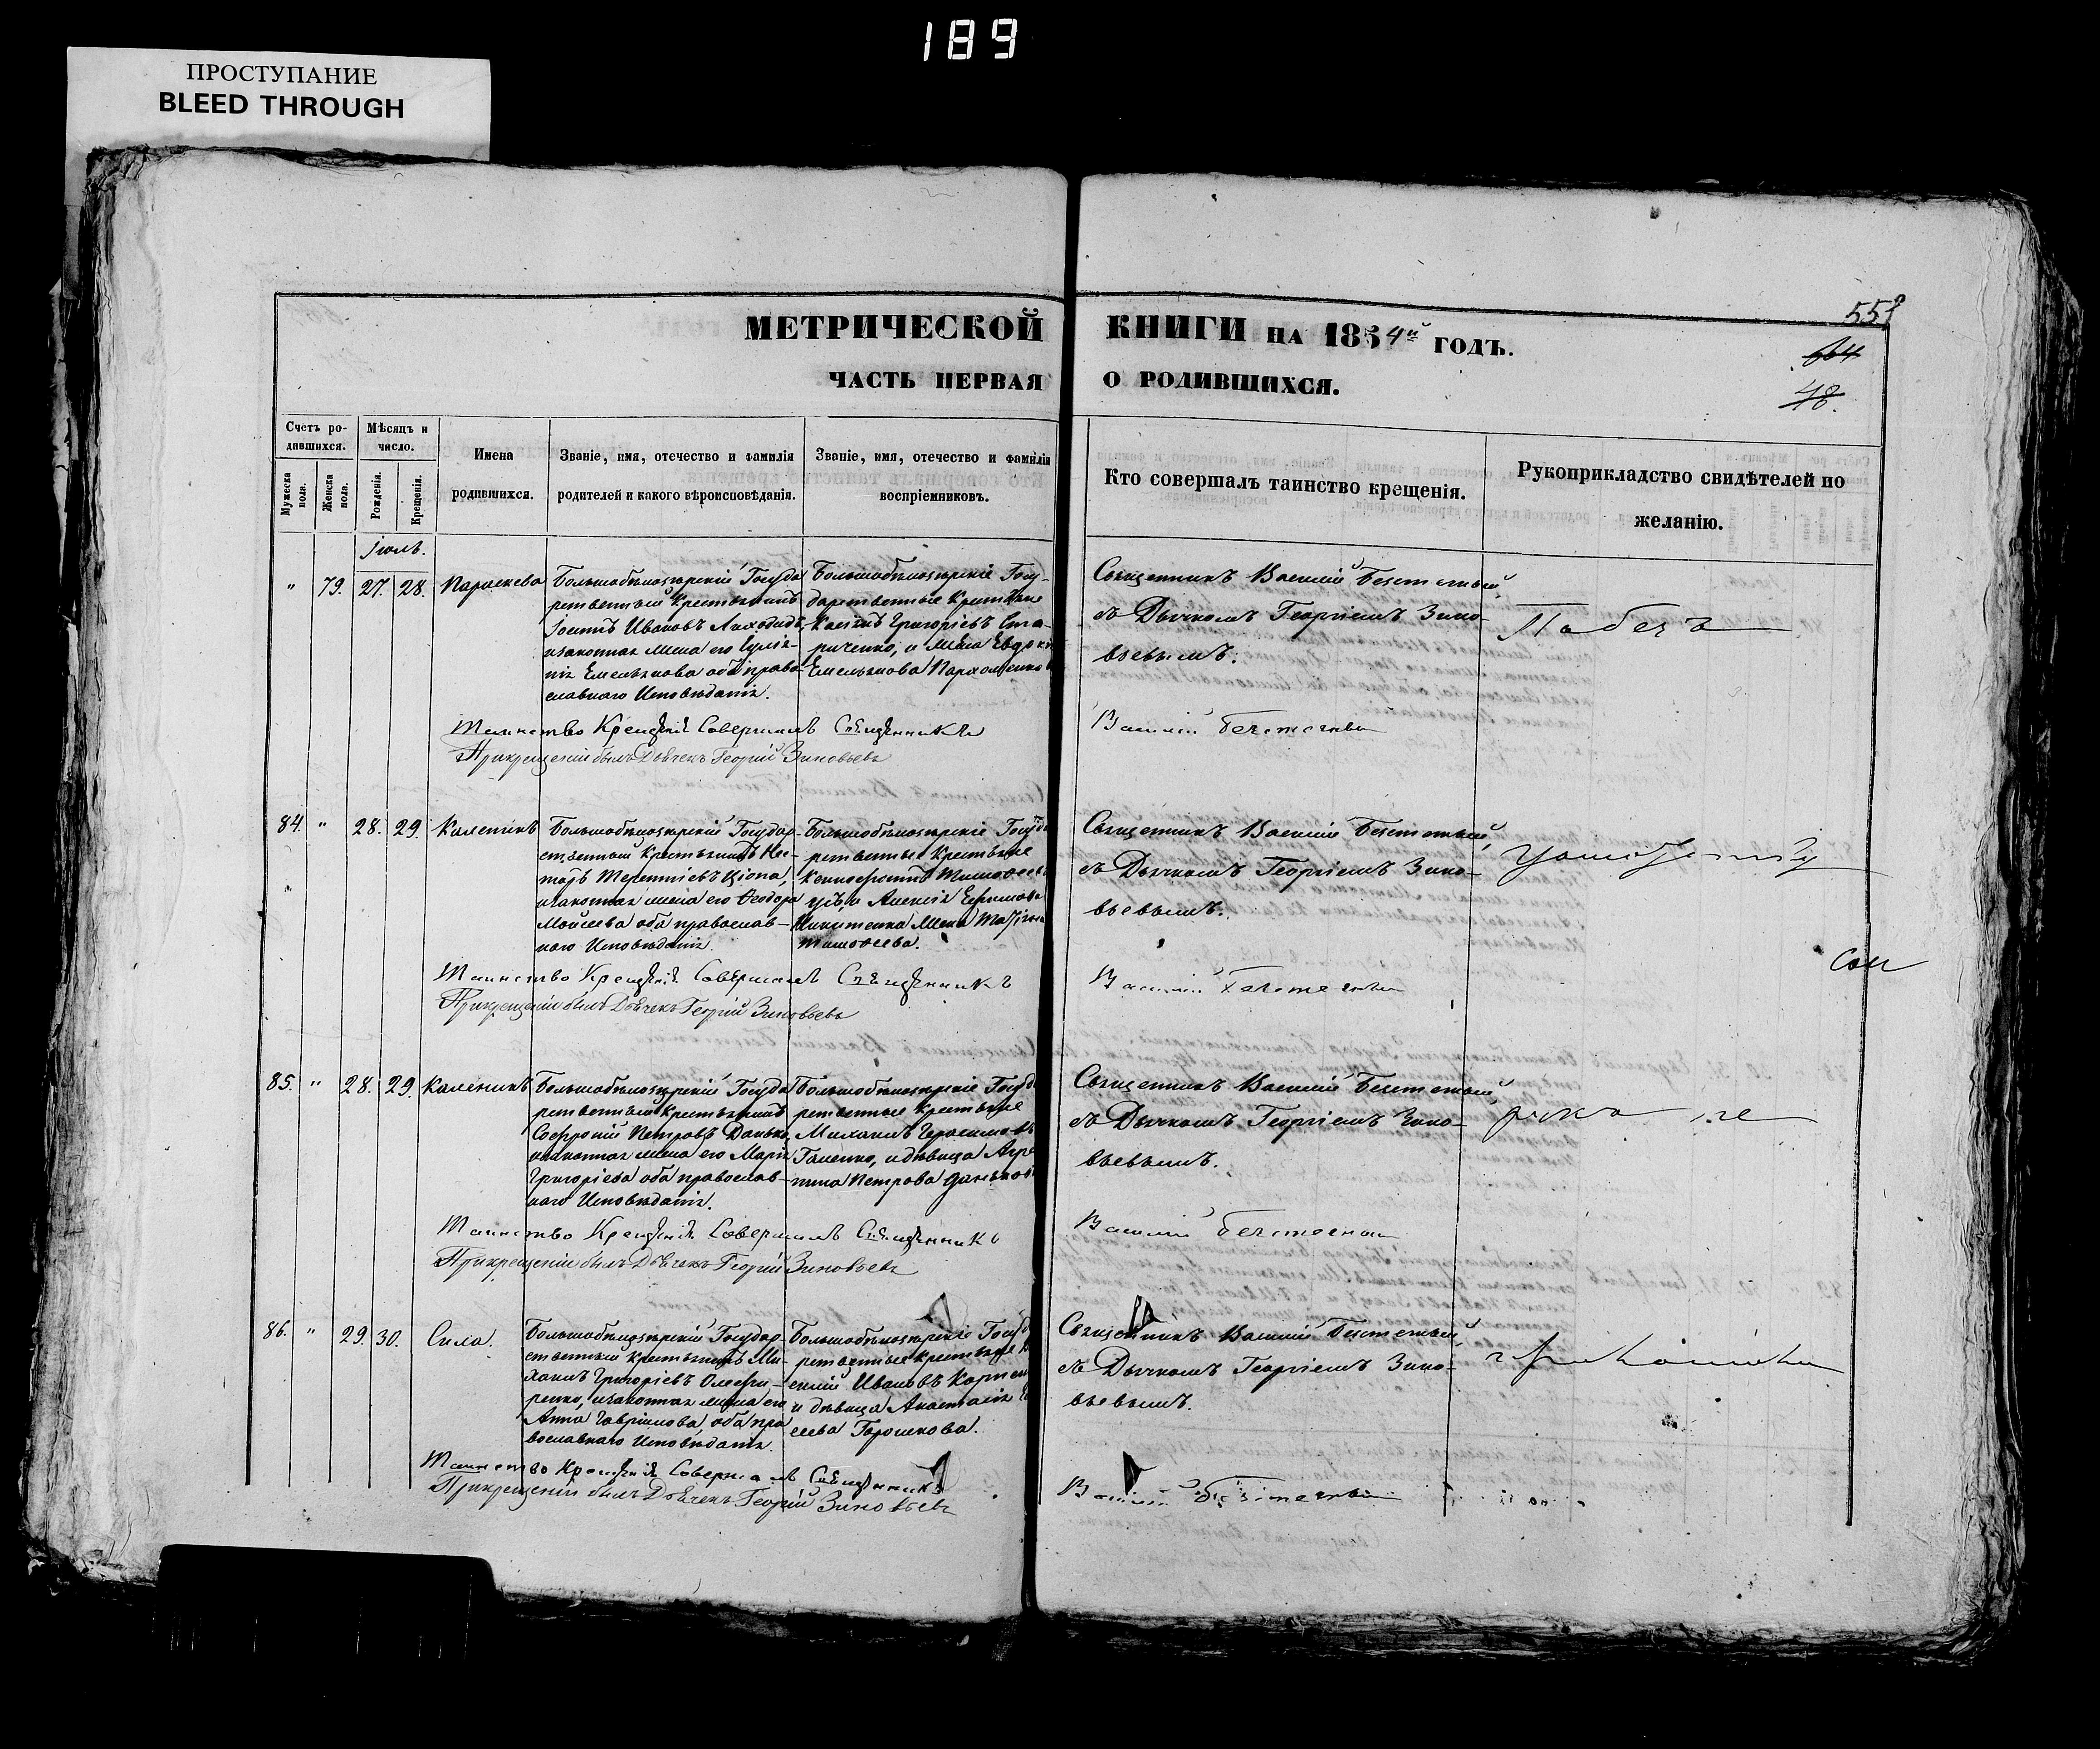 189
ПРОСТУПАНИЕ
BLEED THROUGH
МЕТРИЧЕСКОЙ КНИГИ НА 1854й ГОДЪ.
ЧАСТЬ ПЕРВАЯ О РОДИВШИХСЯ.
664
48.
Счетъ родившихся.
Мѣсяцъ и число.
Мужеска пола.
Женска пола.
Рожденія.
Крещенія.
Имена родившихся.
Званіе, имя, отечество и фамилія родителей и какого вѣроисповѣданія.
Званіе, имя, отечество и фамилія воспріемниковъ.
Кто совершалъ таинство крещенія.
Рукоприкладство свидѣтелей по желанію.
Іюль.
" 79. 27. 28. Параскева
Большобѣлозѣрскій Госуда
рственный Крестьянинъ
Іосифъ Ивановъ
и законная жена его
Емельянова оба право-
славнаго Исповѣданія.
Большобѣлозѣрскіе Госу-
дарственные Крестьяне
Григоріевъ
и Жена
Емельянова Пархоменкова
Священникъ Василій
съ Дьячкомъ Георгіемъ Зино-
вьевымъ.
Таинство Крещенія Совершилъ Священникъ Василій
При крещеніи былъ Дьячекъ Георгій Зиновьевъ
84. " 28. 29. Каленикъ
Большобѣлозѣрскій Государ-
ственный Крестьянинъ Нес-
торъ Терентіевъ Ціопа,
и законная жена его Ѳеодора
Мойсеева оба православ-
наго Исповѣданія.
Большобѣлозѣрскіе Госуда
рственные Крестьяне
Ксенофонтъ
и
Никитенка Жена Татіана
Тимоѳеева.
Священникъ Василій
съ Дьячкомъ Георгіемъ Зино-
вьевымъ.
Таинство Крещенія Совершилъ Священникъ Василій
При крещеніи былъ Дьячекъ Георгій Зиновьевъ
85. " 28. 29. Каленикъ
Большобѣлозѣрскій Госуда
рственный Крестьянинъ
Софроній Петровъ Данько,
и законная жена его Марія
Григоріева оба православ-
наго Исповѣданія.
Большобѣлозѣрскіе Госуда
рственные Крестьяне
Михаилъ Герасимовъ
Галенко, и дѣвица Агри
пина Петрова Данькова
Священникъ Василій
съ Дьячкомъ Георгіемъ Зино-
вьевымъ.
Таинство Крещенія Совершилъ Священникъ Василій
При крещеніи былъ Дьячекъ Георгій Зиновьевъ
86. " 29. 30. Сила.
Большобѣлозѣрскій Государ-
ственный Крестьянинъ Ми-
хаилъ Григоріевъ Олефи-
ренко, и законная жена его
Анна Гавріилова, оба пра
вославнаго Исповѣданія.
Большобѣлозѣрскіе Госуда
рственные Крестьяне
Ивановъ
и дѣвица Анастасія
Горошкова.
Священникъ Василій
съ Дьячкомъ Георгіемъ Зино-
вьевымъ.
Таинство Крещенія Совершилъ Священникъ Василій
При крещеніи былъ Дьячекъ Георгій Зиновьевъ